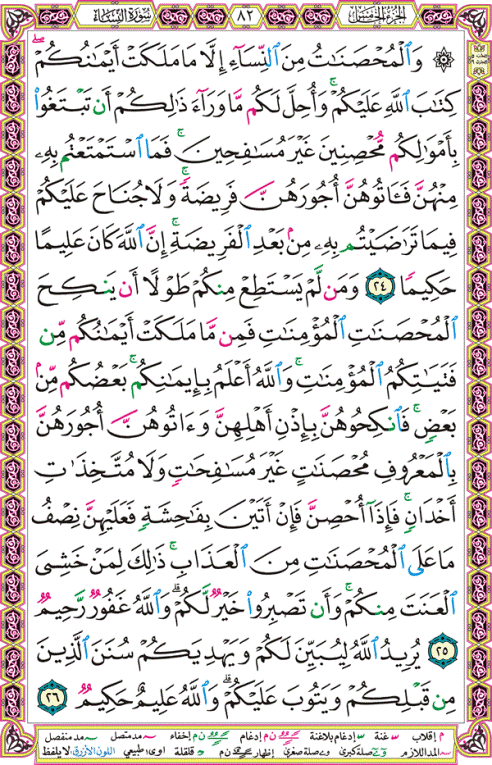 سورة النساء ٨٢ الجزء الخامس
۞ وَٱلْمُحْصَنَٰتُ مِنَ ٱلنِّسَآءِ إِلَّا مَا مَلَكَتْ أَيْمَٰنُكُمْ ۖ
كِتَٰبَ ٱللَّهِ عَلَيْكُمْ ۚ وَأُحِلَّ لَكُم مَّا وَرَآءَ ذَٰلِكُمْ أَن تَبْتَغُوا۟
بِأَمْوَٰلِكُم مُّحْصِنِينَ غَيْرَ مُسَٰفِحِينَ ۚ فَمَا ٱسْتَمْتَعْتُم بِهِۦ
مِنْهُنَّ فَـَٔاتُوهُنَّ أُجُورَهُنَّ فَرِيضَةً ۚ وَلَا جُنَاحَ عَلَيْكُمْ
فِيمَا تَرَٰضَيْتُم بِهِۦ مِنۢ بَعْدِ ٱلْفَرِيضَةِ ۚ إِنَّ ٱللَّهَ كَانَ عَلِيمًا
حَكِيمًا ٢٤ وَمَن لَّمْ يَسْتَطِعْ مِنكُمْ طَوْلًا أَن يَنكِحَ
ٱلْمُحْصَنَٰتِ ٱلْمُؤْمِنَٰتِ فَمِن مَّا مَلَكَتْ أَيْمَٰنُكُم مِّن
فَتَيَٰتِكُمُ ٱلْمُؤْمِنَٰتِ ۚ وَٱللَّهُ أَعْلَمُ بِإِيمَٰنِكُم ۚ بَعْضُكُم مِّنۢ
بَعْضٍ ۚ فَٱنكِحُوهُنَّ بِإِذْنِ أَهْلِهِنَّ وَءَاتُوهُنَّ أُجُورَهُنَّ
بِٱلْمَعْرُوفِ مُحْصَنَٰتٍ غَيْرَ مُسَٰفِحَٰتٍ وَلَا مُتَّخِذَٰتِ
أَخْدَانٍ ۚ فَإِذَآ أُحْصِنَّ فَإِنْ أَتَيْنَ بِفَٰحِشَةٍ فَعَلَيْهِنَّ نِصْفُ
مَا عَلَى ٱلْمُحْصَنَٰتِ مِنَ ٱلْعَذَابِ ۚ ذَٰلِكَ لِمَنْ خَشِىَ
ٱلْعَنَتَ مِنكُمْ ۚ وَأَن تَصْبِرُوا۟ خَيْرٌ لَّكُمْ ۗ وَٱللَّهُ غَفُورٌ رَّحِيمٌ
٢٥ يُرِيدُ ٱللَّهُ لِيُبَيِّنَ لَكُمْ وَيَهْدِيَكُمْ سُنَنَ ٱلَّذِينَ
مِن قَبْلِكُمْ وَيَتُوبَ عَلَيْكُمْ ۗ وَٱللَّهُ عَلِيمٌ حَكِيمٌ ٢٦
م إقلاب غنة إدغام بلاغنة ن م إدغام ن م إخفاء مد متصل مد منفصل
المد اللازم وصلة كبرى وصلة صغرى إظهار ن م قلقلة اوى: طبيعي اللون الأزرق: لا يلفظ